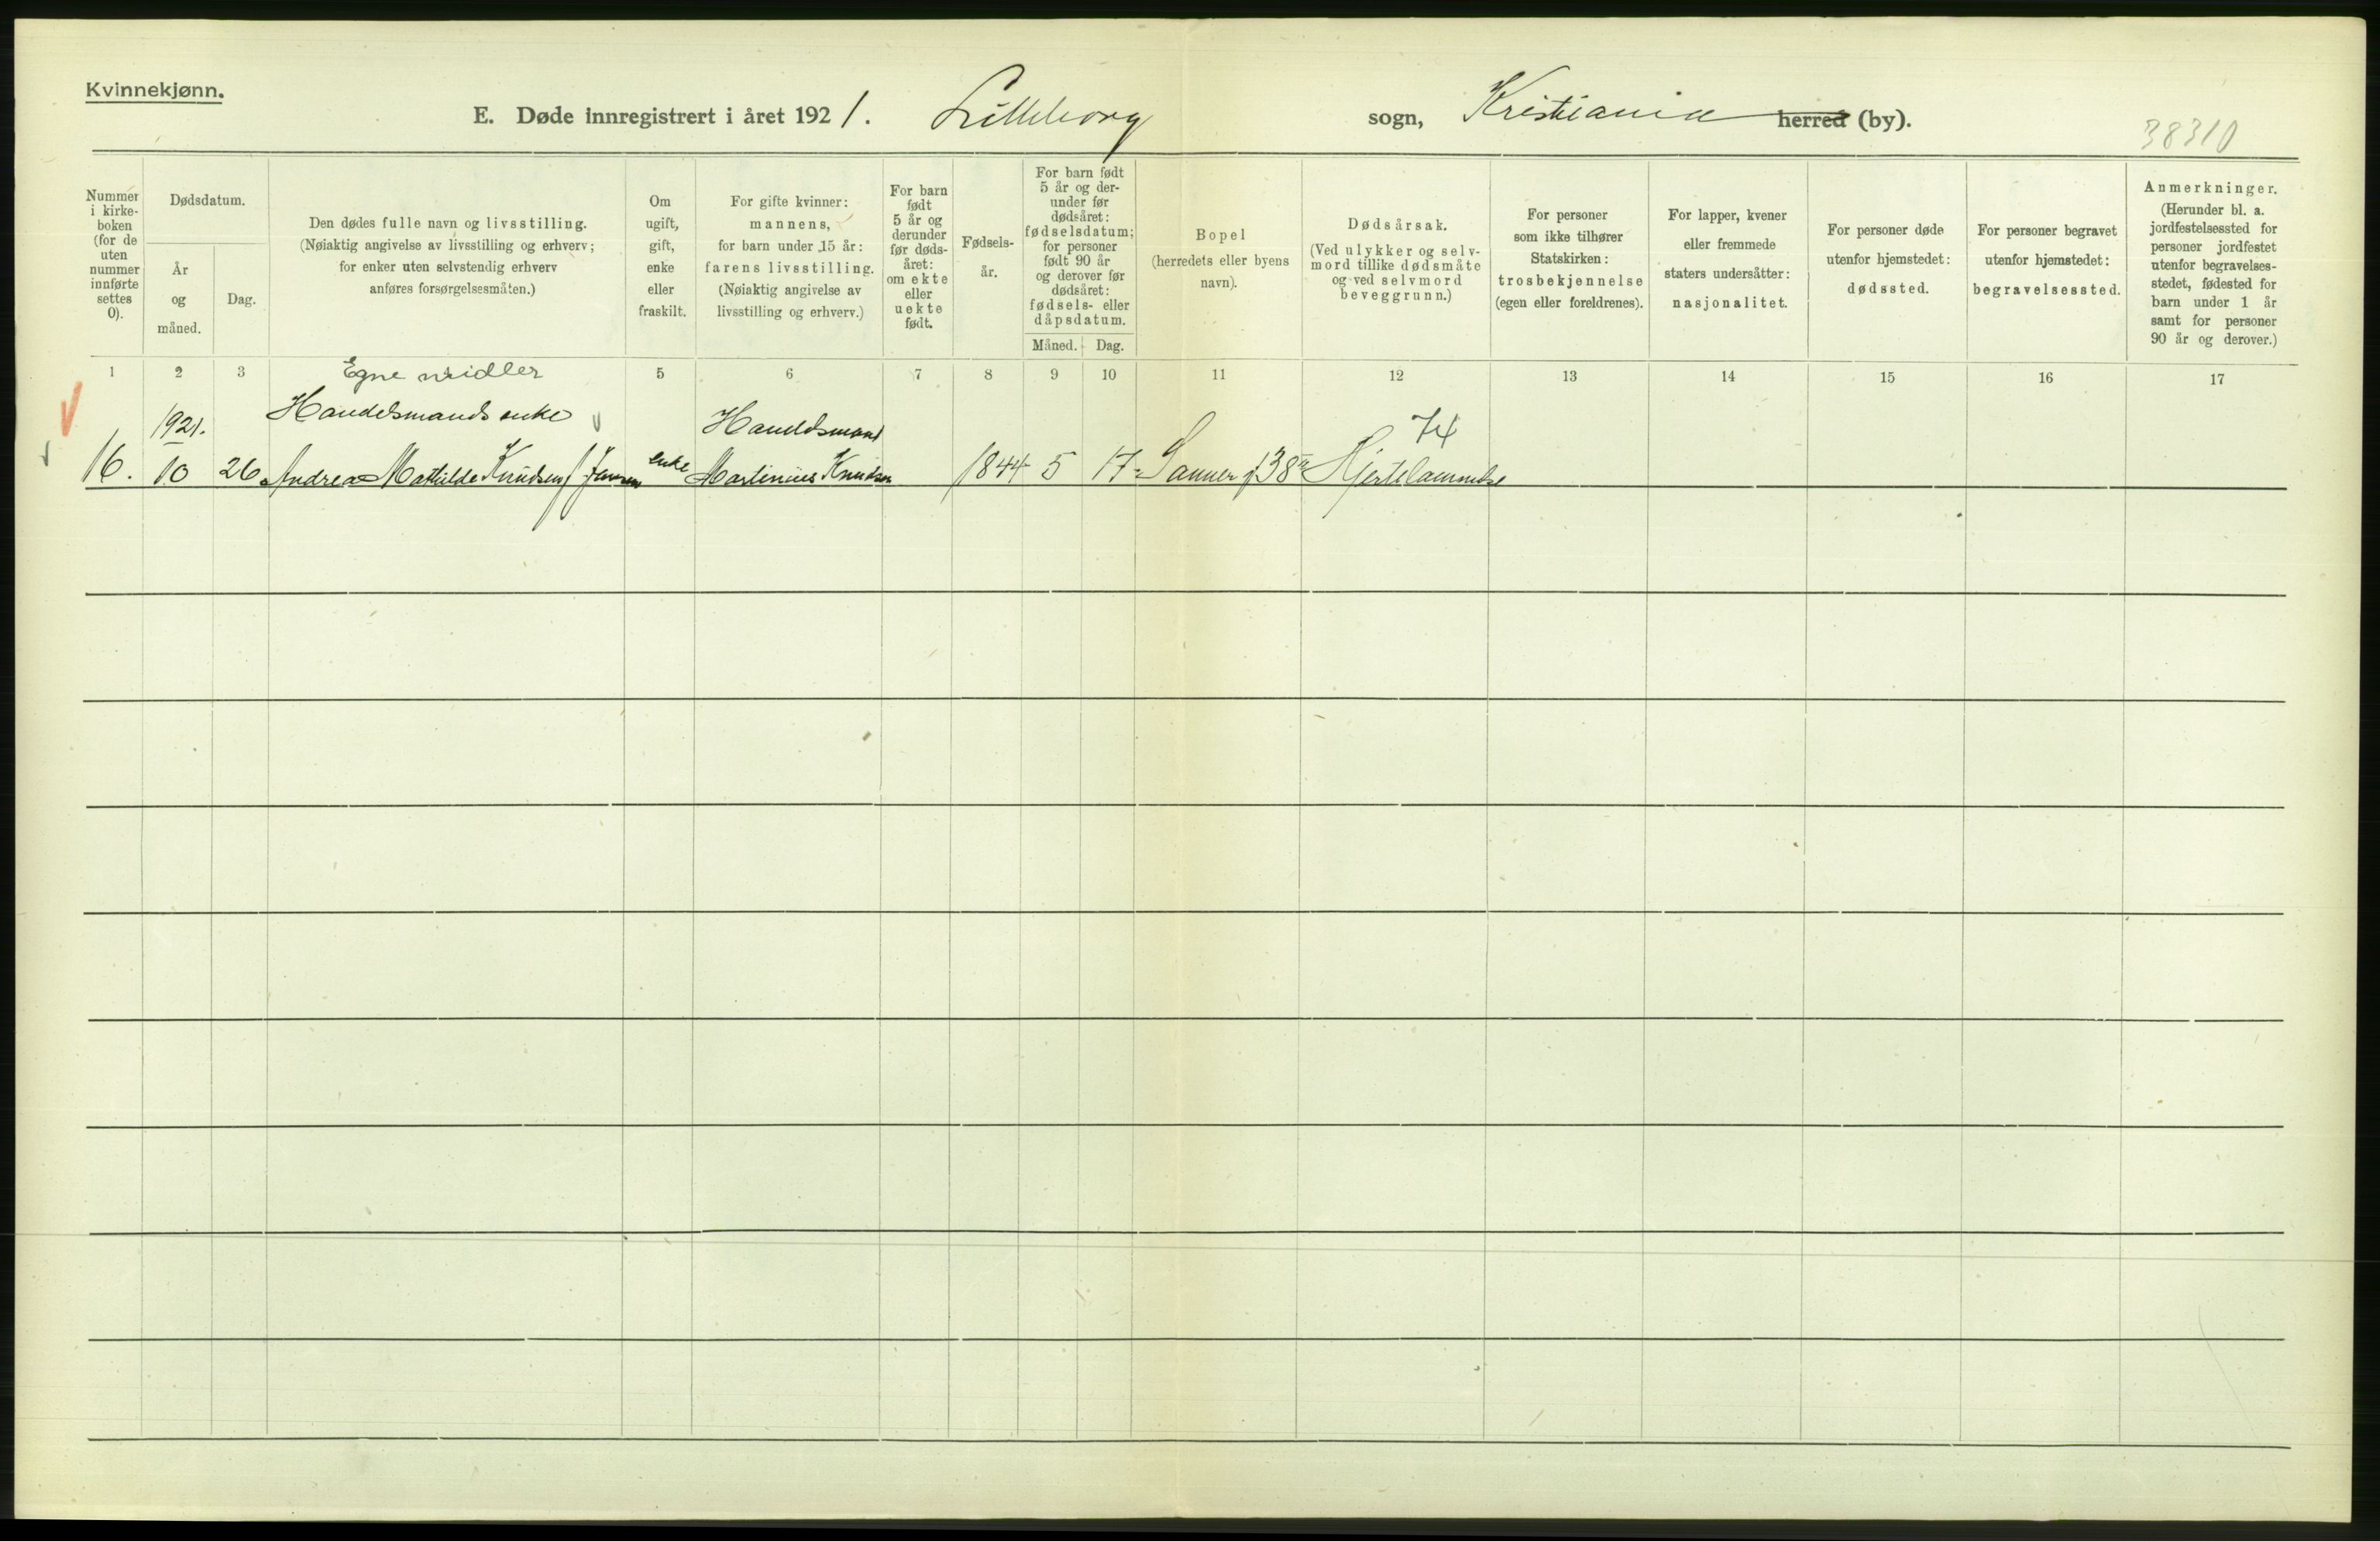 Kvinnekjønn.
E. Døde innregistrert i året 1921. Lilleborg sogn, Kristiania herred (by).
38310
Nummer i kirke-boken (for de uten nummer innførte settes 0).
Dødsdatum.
År og måned.
Dag.
Den dødes fulle navn og livsstilling.
(Nøiaktig angivelse av livsstilling og erhverv;
for enker uten selvstendig erhverv
anføres forsørgelsesmåten.)
Om
ugift,
gift,
enke
eller
fraskilt.
For gifte kvinner:
mannens,
for barn under 15 år:
farens livsstilling.
(Nøiaktig angivelse av
livsstilling og erhverv.)
For barn
født
5 år og
derunder
før døds-
året:
om ekte
eller
uekte
født.
Fødsels-
år.
For barn født
5 år og der-
under før
dødsåret:
fødselsdatum;
for personer
født 90 år
og derover før
dødsåret:
fødsels- eller
dåpsdatum.
Måned. Dag.
Bopel
(herredets eller byens
navn).
Dødsårsak.
(Ved ulykker og selv-
mord tillike dødsmåte
og ved selvmord
beveggrunn.)
For personer
som ikke tilhører
Statskirken:
trosbekjennelse
(egen eller foreldrenes).
For lapper, kvener
eller fremmede
staters undersåtter:
nasjonalitet.
For personer døde
utenfor hjemstedet:
dødssted.
For personer begravet
utenfor hjemstedet:
begravelsessted.
Anmerkninger.
(Herunder bl. a.
jordfestelsessted for
personer jordfestet
utenfor begravelses-
stedet, fødested for
barn under 1 år
samt for personer
90 år og derover.)
1 2 3 Egne midler 5 6 7 8 9 10 11 12 13 14 15 16 17
1921. Handelsmands enke Handelsmand 74
16. 10 26 Andrea Mathilde Knudsen f. Jensen enke Martinius Knudsen 1844 5 17 Sanner g 38 Hjertelammelse